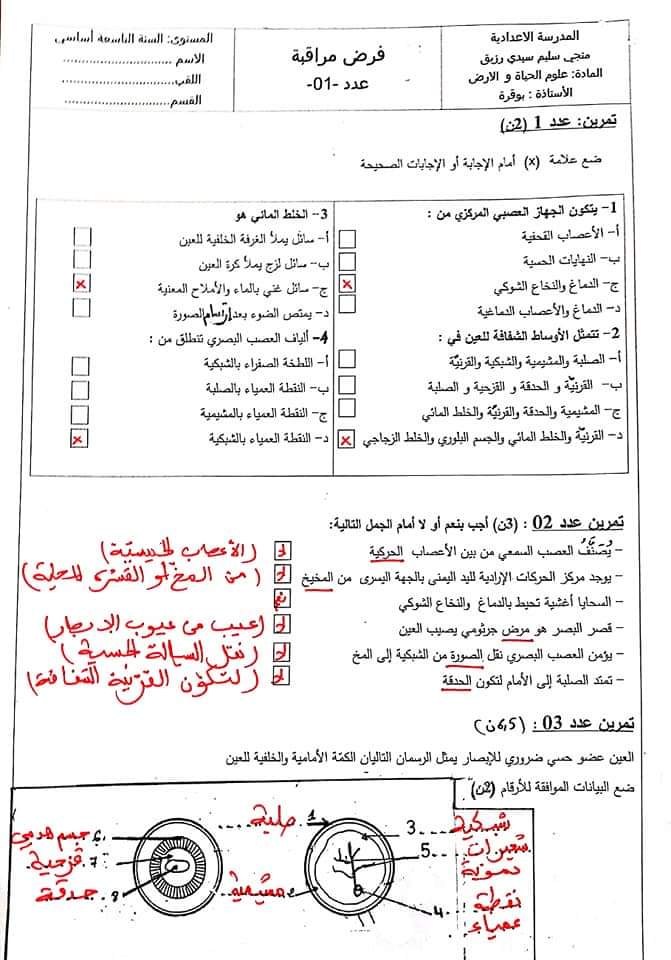 المدرسة الاعدادية
منجي سليم سيدي رزيق
المادة: علوم الحياة و الارض
الأستاذة : بوقرة
فرض مراقبة
عدد -01-
المستوى: السنة التاسعة أساسي
الاسم ..............................
اللقب..............................
القسم..............................
تمرين: عدد 1 (2ن)
ضع علامة (x) أمام الإجابة أو الإجابات الصحيحة
1- يتكون الجهاز العصبي المركزي من :
أ- الأعصاب القحفية
ب- النهايات الحسية
ج- الدماغ والنخاع الشوكي x
د- الدماغ والأعصاب الدماغية
2- تتمثل الأوساط الشفافة للعين في :
أ- الصلبة والمشيمية والشبكية والقرنيّة
ب- القرنيّة و الحدقة و القزحية و الصلبة
ج- المشيمية والحدقة والقرنيّة والخلط المائي
د- القرنيّة والخلط المائي والجسم البلوري والخلط الزجاجي x
3- الخلط المائي هو
أ- سائل يملأ الغرفة الخلفية للعين
ب- سائل لزج يملأ كرة العين
ج- سائل غني بالماء والأملاح المعدنية x
د- يمتص الضوء بعد ارتسام الصورة
4- ألياف العصب البصري تنطلق من :
أ- اللطخة الصفراء بالشبكية
ب- النقطة العمياء بالصلبة
ج- النقطة العمياء بالمشيمية
د- النقطة العمياء بالشبكية x
تمرين عدد 02 : (3ن) أجب بنعم أو لا أمام الجمل التالية:
– يُصَنَّفُ العصب السمعي من بين الأعصاب الحركية لا (الأعصاب الحسية)
– يوجد مركز الحركات الإرادية لليد اليمنى بالجهة اليسرى من المخيخ لا (من المخ أو القشرة المخية)
– السحايا أغشية تحيط بالدماغ والنخاع الشوكي نعم
– قصر البصر هو مرض جرثومي يصيب العين لا (عيب من عيوب الإبصار)
– يؤمن العصب البصري نقل الصورة من الشبكية إلى المخ لا (نقل السيالة الحسية)
– تمتد الصلبة إلى الأمام لتكون الحدقة لا (لتكوّن القرنية الشفافة)
تمرين عدد 03 : (6,5ن)
العين عضو حسي ضروري للإبصار يمثل الرسمان التاليان الكمّة الأمامية والخلفية للعين
ضع البيانات الموافقة للأرقام (2ن)
1 صلبة
2 مشيمية
3 شبكية
5 شعيرات دموية
4 نقطة عمياء
6 جسم هدبي
7 قزحية
8 حدقة